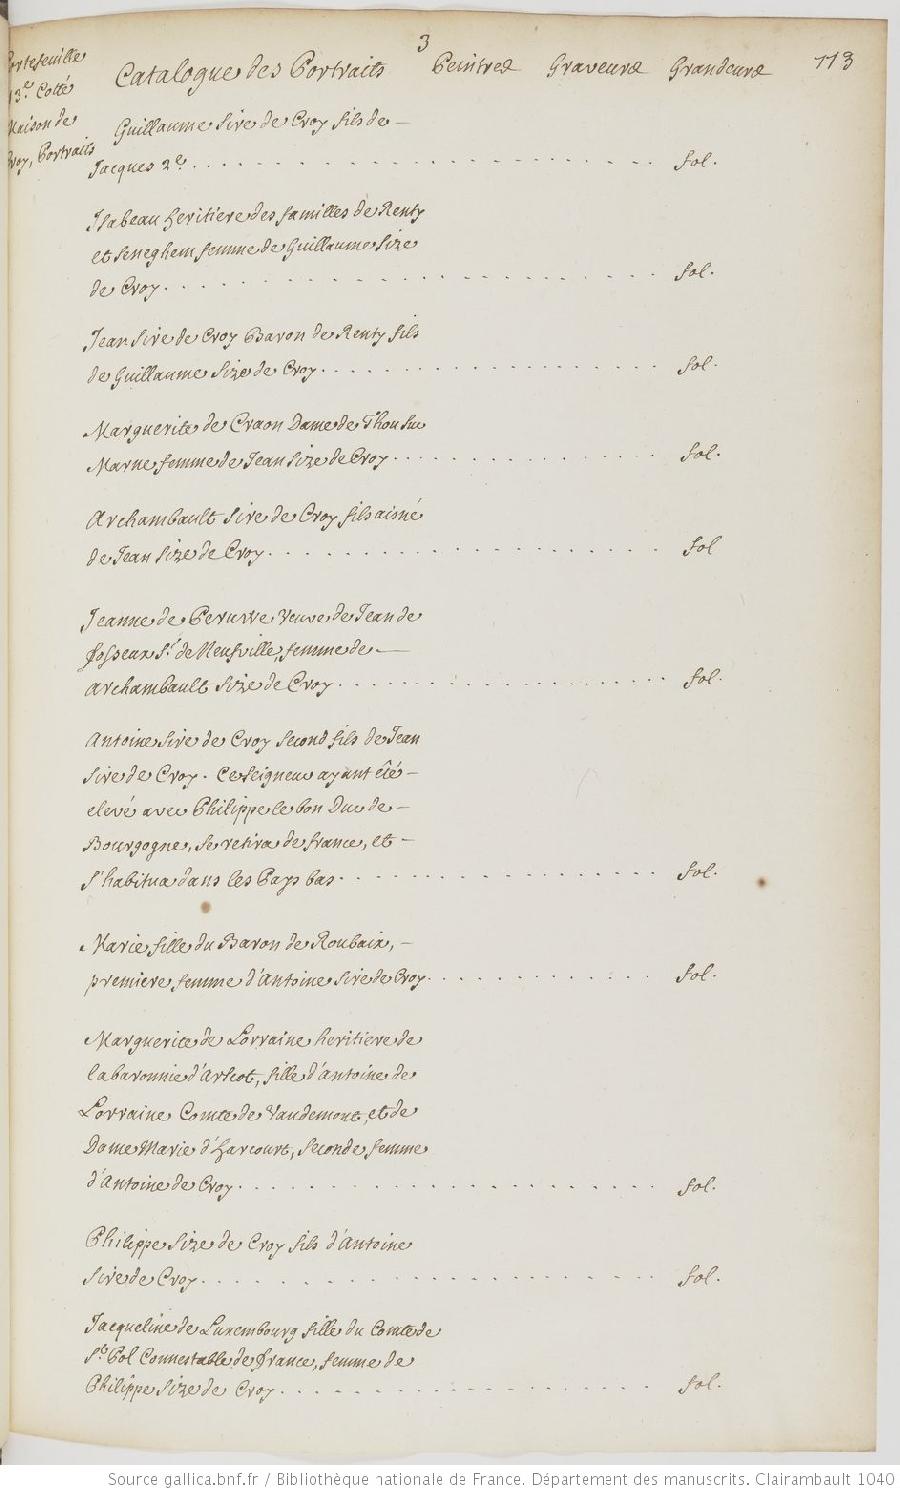 3
Portefeuille
13e Cotté
Maison de
Croy, Portraits
Catalogue des Portraits Peintres Graveurs Grandeurs 113
Guillaume Sire de Croy fils de —
Jacques 2e . . . . . . . . . . fol.
Isabeau heritiere des familles de Renty
et Seneghem femme de Guillaume Sire
de Croy . . . . . . . . . . fol.
Jean Sire de Croy Baron de Renty fils
de Guillaume Sire de Croy . . . . . . . . . . fol.
Marguerite de Craon Dame de Thou sur
Marne femme de Jean Sire de Croy . . . . . . . . . . fol.
Archambault Sire de Croy fils aisné
de Jean Sire de Croy . . . . . . . . . . fol
Jeanne de Perusse Veuve de Jean de
fosseux Sr. de Neufville, femme de —
Archambault Sire de Croy . . . . . . . . . . fol.
Antoine Sire de Croy Second fils de Jean
Sire de Croy. Ce Seigneur ayant été —
elevé avec Philippe le bon Duc de —
Bourgogne, Se retira de france, et —
S'habitua dans les Pays bas . . . . . . . . . . fol.
Marie fille du Baron de Roubaix, —
premiere femme d'Antoine Sire de Croy . . . . . . . . . . fol.
Marguerite de Lorraine heritiere de
la baronnie d'Arscot, fille d'Antoine de
Lorraine Comte de Vaudemont, et de
Dame Marie d'Harcourt, Seconde femme
d'Antoine de Croy . . . . . . . . . . fol.
Philippe Sire de Croy fils d'Antoine
Sire de Croy . . . . . . . . . . fol.
Jacqueline de Luxembourg fille du Comte de
St. Pol Connestable de france, femme de
Philippe Sire de Croy . . . . . . . . . . fol.
Source gallica.bnf.fr / Bibliothèque nationale de France. Département des manuscrits. Clairambault 1040